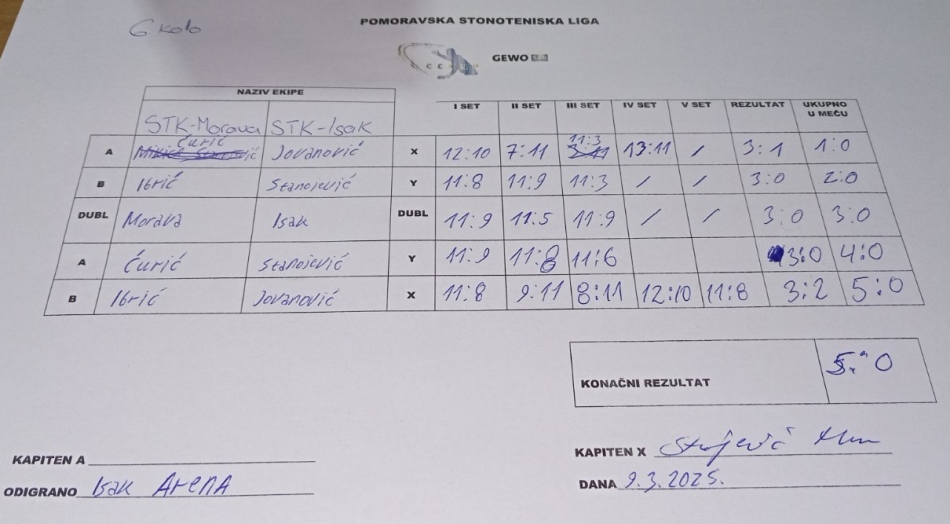 POMORAVSKA STONOTENISKA LIGA
6 kolo
GEWO
NAZIV EKIPE I SET II SET III SET IV SET V SET REZULTAT UKUPNO U MEČU
STK-Morava STK-Isak
A Ćurić Jovanović X 12:10 7:11 11:3 13:11 / 3:1 1:0
B Ibrić Stanojević Y 11:8 11:9 11:3 / / 3:0 2:0
DUBL Morava Isak DUBL 11:9 11:5 11:9 / / 3:0 3:0
A Ćurić Stanojević Y 11:9 11:8 11:6 3:0 4:0
B Ibrić Jovanović X 11:8 9:11 8:11 12:10 11:8 3:2 5:0
KONAČNI REZULTAT 5:0
KAPITEN A
KAPITEN X
ODIGRANO Isak Arena
DANA 9.3.2025.